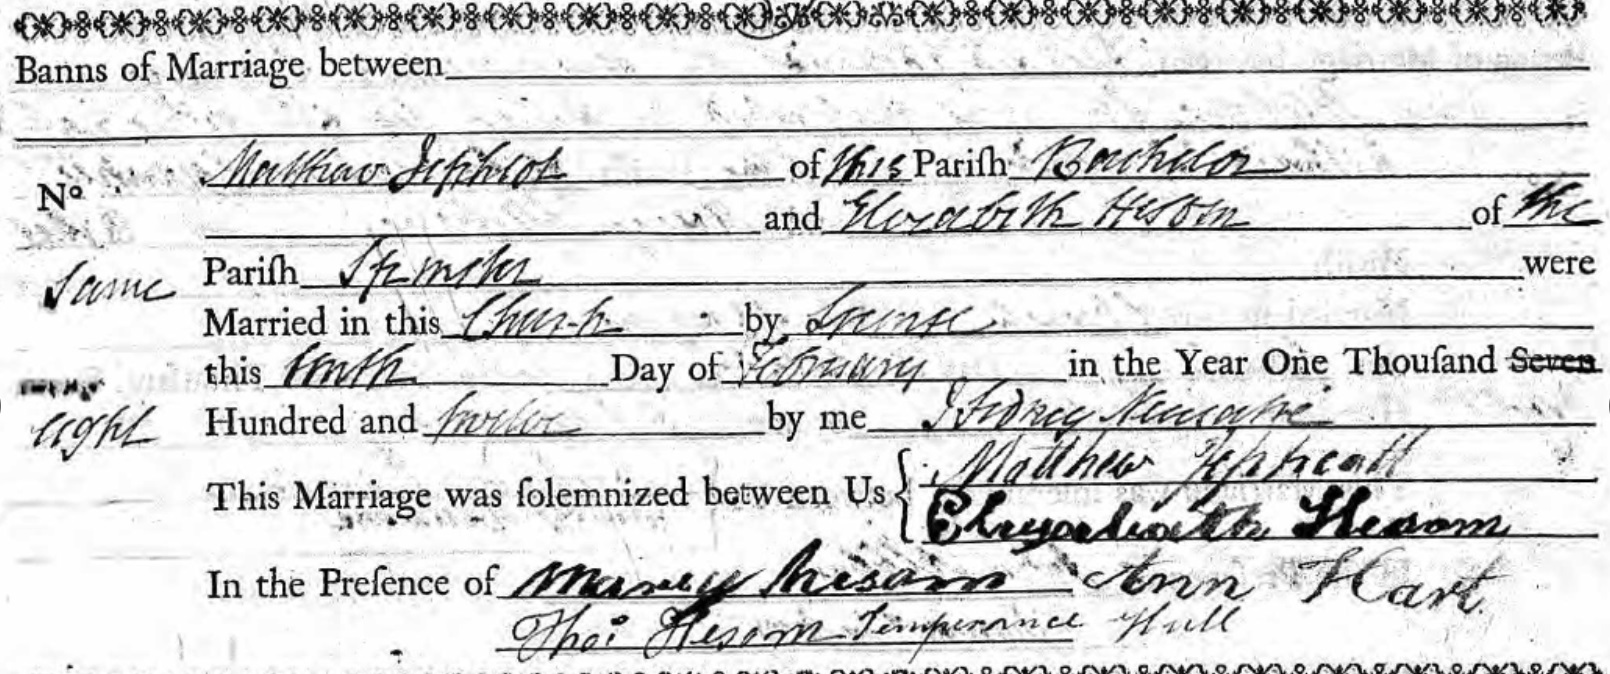 Banns of Marriage between
Matthew Jephcot of this Pariſh Bachelor
Nº
and Elizabeth Hesom of the
Same Pariſh Spinster were
Married in this Church by License
this tenth Day of February in the Year One Thouſand Seven
eight Hundred and twelve by me
This Marriage was ſolemnized between Us Matthew Jephcott
Elizabeth Hesom
In the Preſence of Hesom Ann Hart
Thos Hesom Temperance Hull